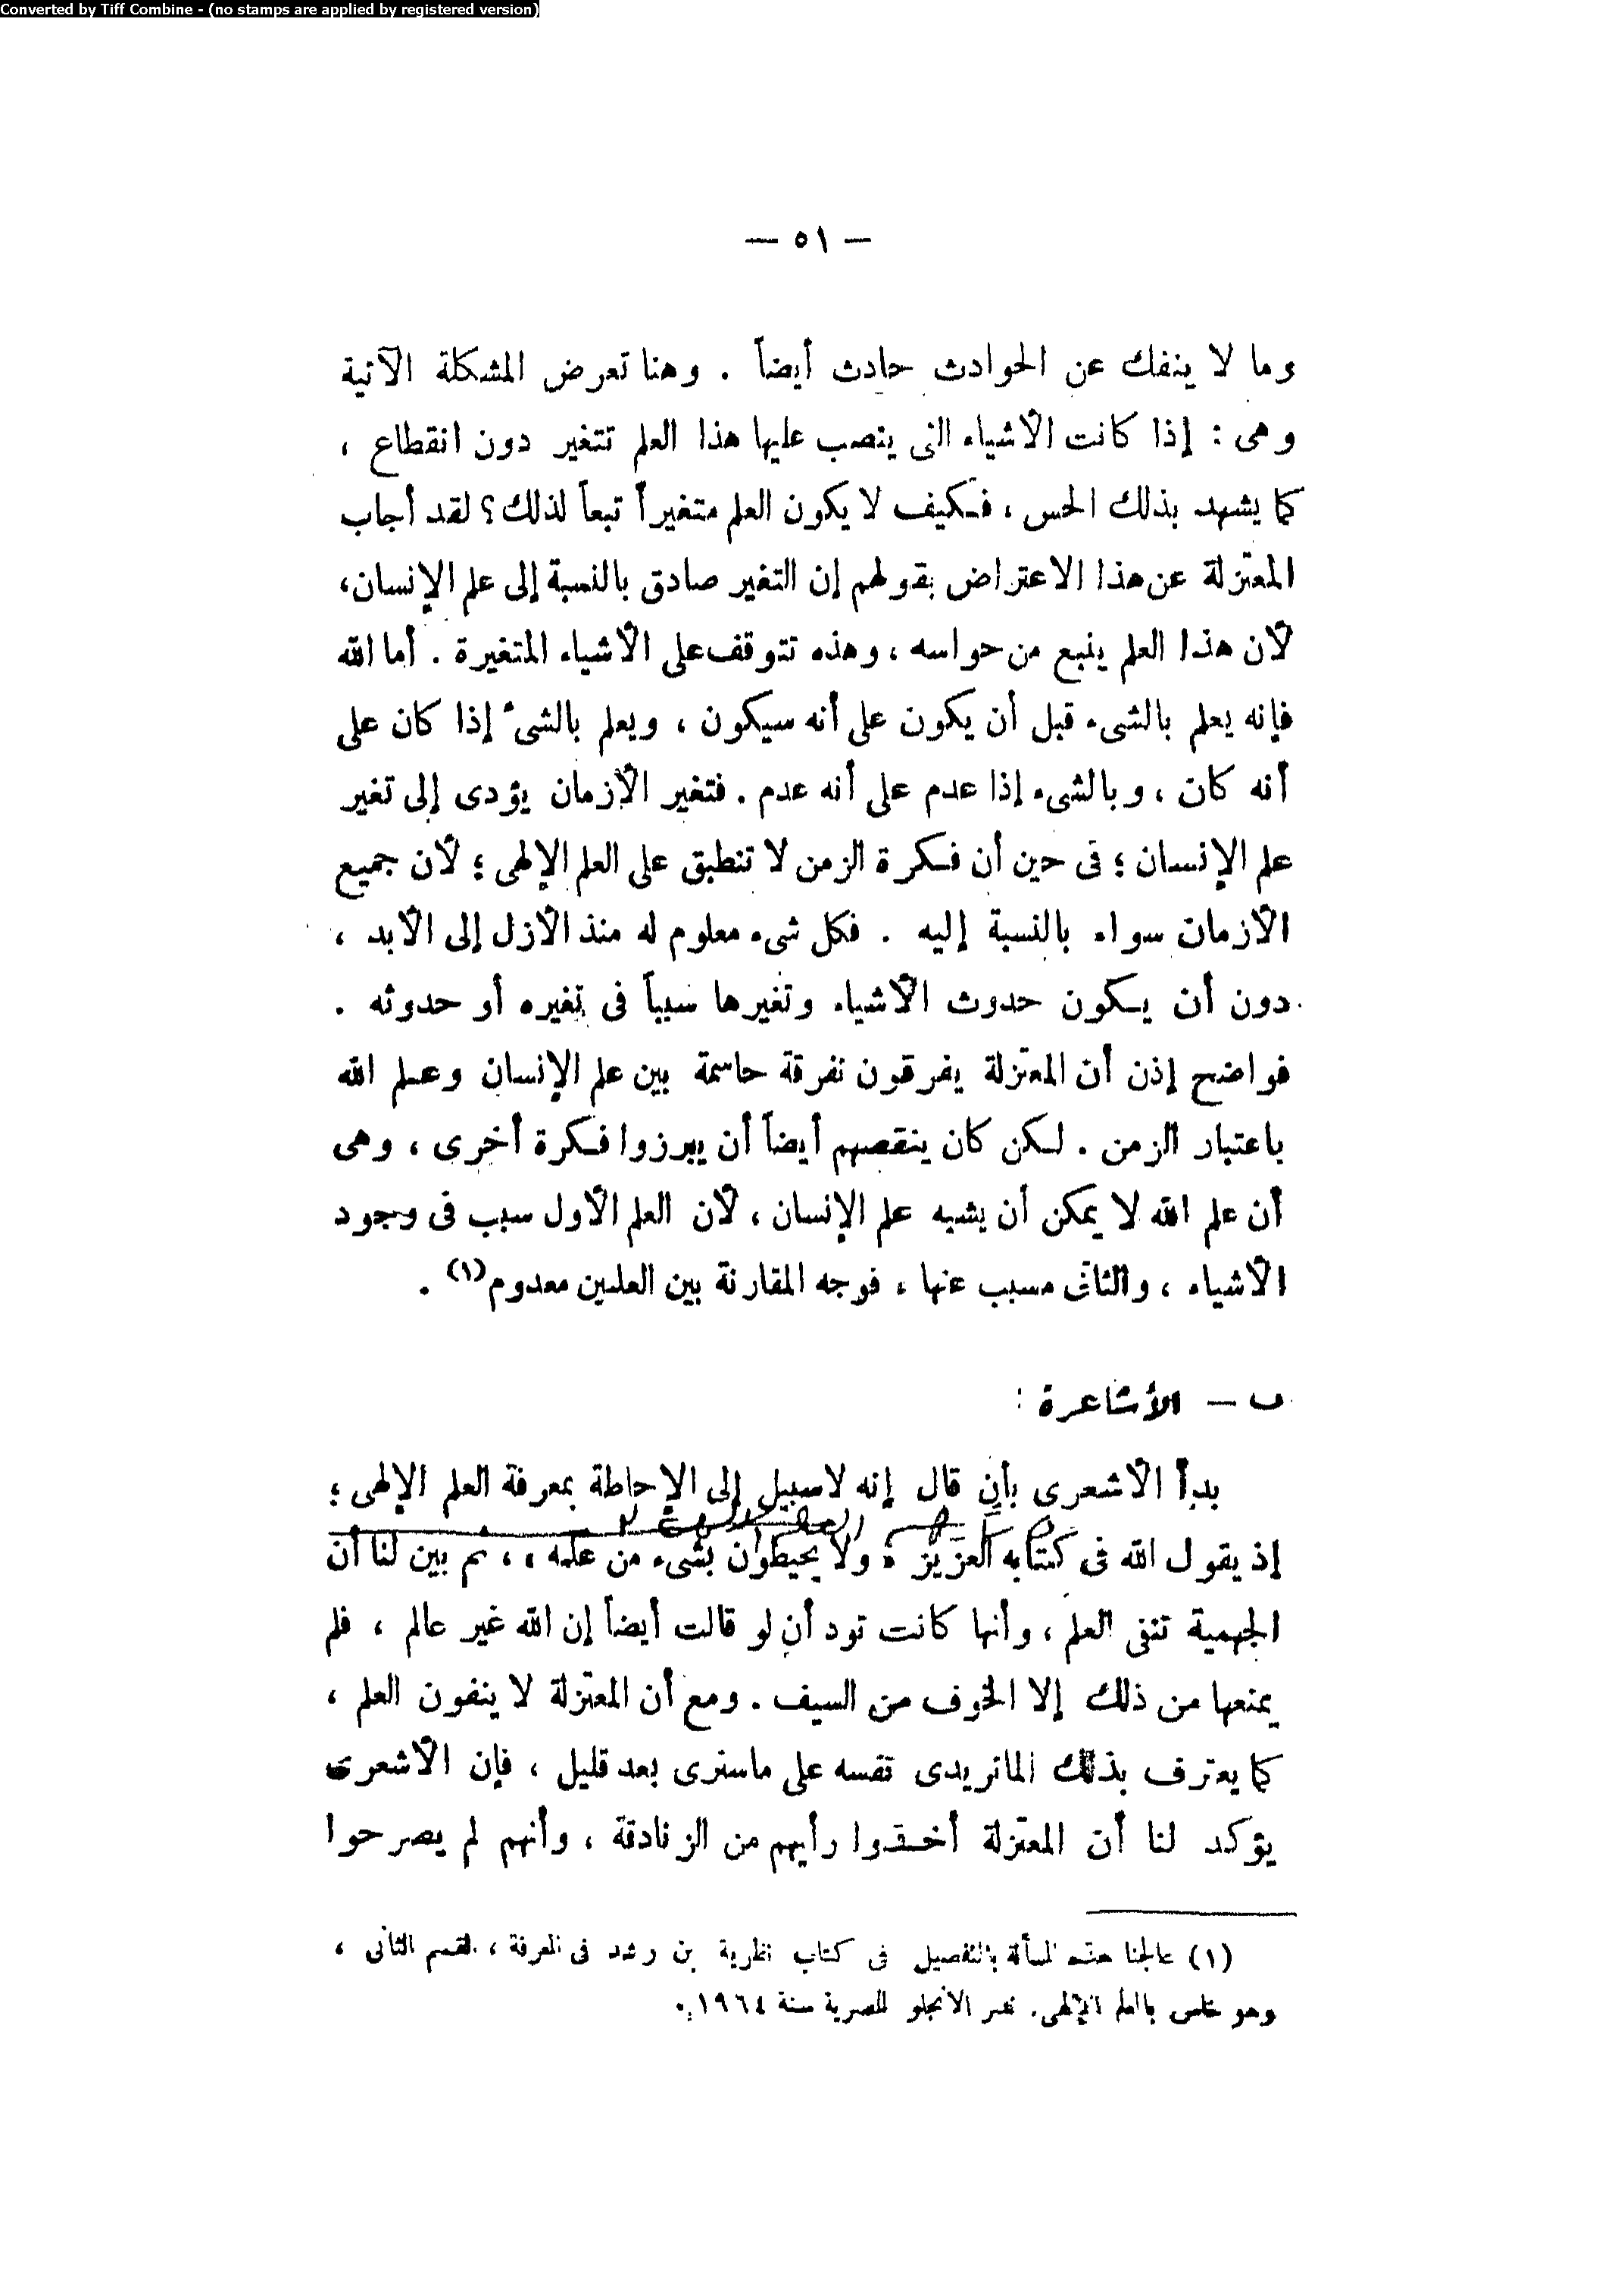 Converted by Tiff Combine - (no stamps are applied by registered version)
— ٥١ —
وما لا ينفك عن الحوادث حادث أيضاً . وهنا تعرض المشكلة الآتية
وهى : إذا كانت الأشياء التى ينصب عليها هذا العلم تتغير دون انقطاع ،
كما يشهد بذلك الحس ، فكيف لا يكون العلم متغيراً تبعاً لذلك ؟ لقد أجاب
المعتزلة عن هذا الاعتراض بقولهم إن التغير صادق بالنسبة إلى علم الإنسان ،
لأن هذا العلم ينبع من حواسه ، وهذه تتوقف على الأشياء المتغيرة . أما الله
فإنه يعلم بالشىء قبل أن يكون على أنه سيكون ، ويعلم بالشىء إذا كان على
أنه كان ، وبالشىء إذا عدم على أنه عدم . فتغير الأزمان يؤدى إلى تغير
علم الإنسان ؛ فى حين أن فكرة الزمن لا تنطبق على العلم الإلهى ؛ لأن جميع
الأزمان سواء بالنسبة إليه . فكل شىء معلوم له منذ الأزل إلى الأبد ،
دون أن يكون حدوث الأشياء وتغيرها سبباً فى تغيره أو حدوثه .
فواضح إذن أن المعتزلة يفرقون تفرقة حاسمة بين علم الإنسان وعلم الله
باعتبار الزمن . لكن كان ينقصهم أيضاً أن يبرزوا فكرة أخرى ، وهى
أن علم الله لا يمكن أن يشبه علم الإنسان ، لأن العلم الأول سبب فى وجود
الأشياء ، والثانى مسبب عنها ، فوجه المقارنة بين العلمين معدوم (١) .
ب — الأشاعرة :
بدأ الأشعرى بأن قال إنه لا سبيل إلى الإحاطة بمعرفة العلم الإلهى ؛
إذ يقول الله فى كتابه العزيز « ولا يحيطون بشىء من علمه » ، ثم بين لنا أن
الجهمية تنفى العلم ، وأنها كانت تود أن لو قالت أيضاً إن الله غير عالم ، فلم
يمنعها من ذلك إلا الخوف من السيف . ومع أن المعتزلة لا ينفون العلم ،
كما يعترف بذلك الماتريدى نفسه على ما سنرى بعد قليل ، فإن الأشعرى
يؤكد لنا أن المعتزلة أخذوا رأيهم من الزنادقة ، وأنهم لم يصرحوا
(١) عالجنا هذه المسألة بالتفصيل فى كتاب نظرية بن رشد فى المعرفة ، القسم الثانى ،
وهو خاص بالعلم الإلهى . نشر الأنجلو المصرية سنة ١٩٦٤ .